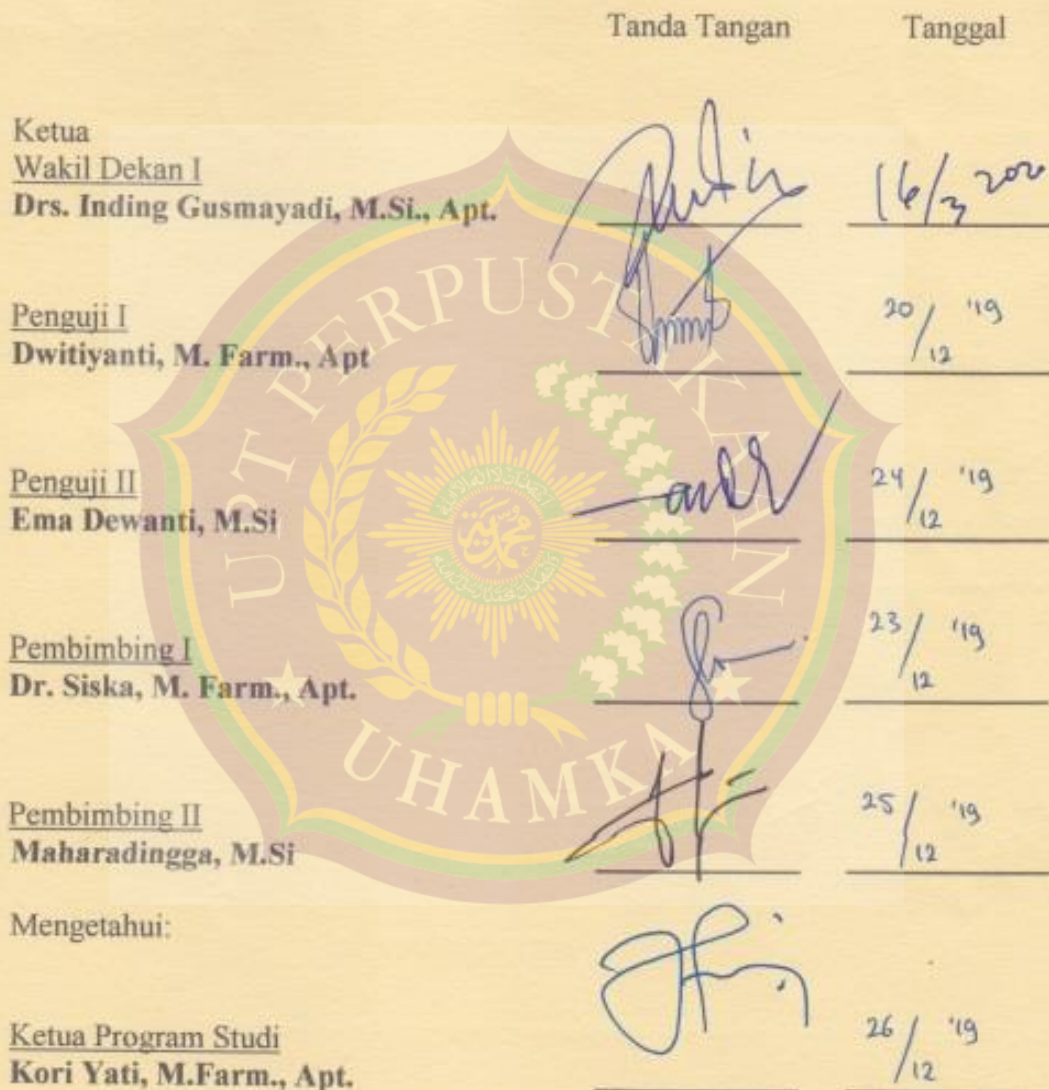 Tanda Tangan Tanggal
Ketua
Wakil Dekan I
Drs. Inding Gusmayadi, M.Si., Apt.
16/3 2020
Penguji I
Dwitiyanti, M. Farm., Apt
20/12 '19
Penguji II
Ema Dewanti, M.Si
24/12 '19
Pembimbing I
Dr. Siska, M. Farm., Apt.
23/12 '19
Pembimbing II
Maharadingga, M.Si
25/12 '19
Mengetahui:
Ketua Program Studi
Kori Yati, M.Farm., Apt.
26/12 '19
UPT PERPUSTAKAAN
UHAMKA